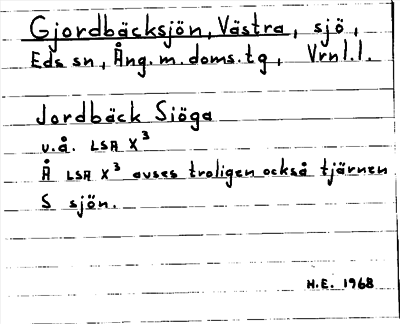 Gjordbäcksjön, Västra, sjö,
Eds sn, Ång. m. doms. tg, Vrml.l.
Jordbäck Siöga
v.å. LSA X³
Å LSA X³ avses troligen också tjärnen
S sjön.
H.E. 1968